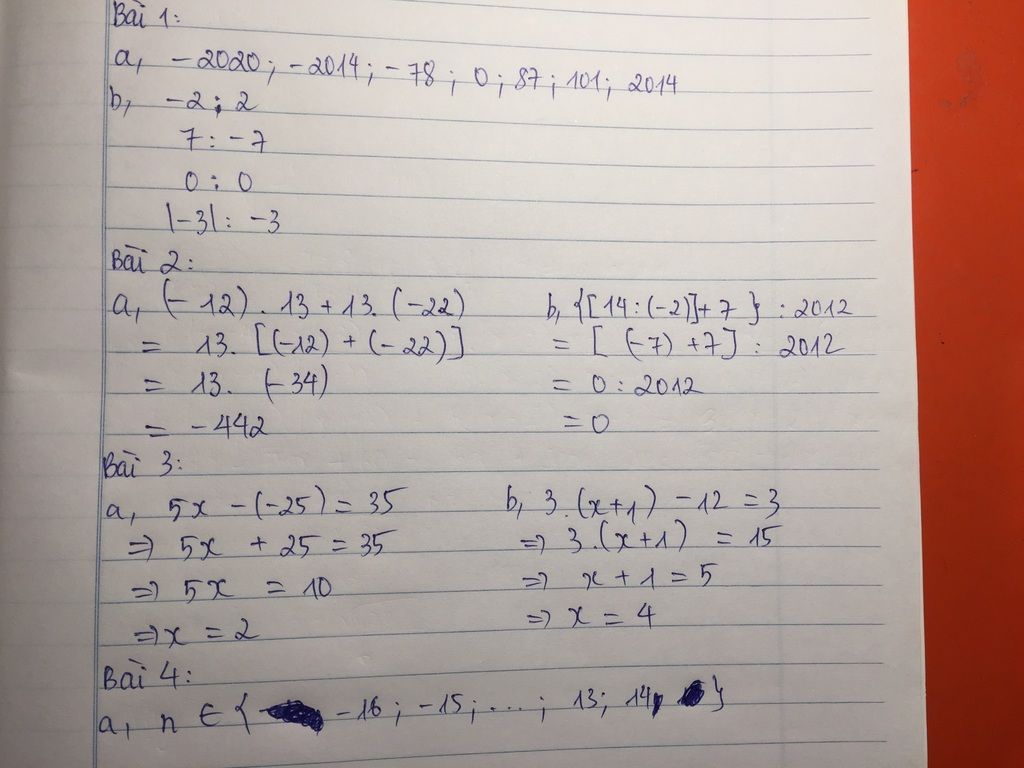 Bài 1:
a, -2020; -2014; -78; 0; 87; 101; 2014
b, -2: 2
7: -7
0: 0
|-3|: -3
Bài 2:
a, (-12). 13 + 13. (-22)
= 13. [(-12) + (-22)]
= 13. (-34)
= -442
b, {[14:(-2)]+7} : 2012
= [(-7) +7] : 2012
= 0 : 2012
= 0
Bài 3:
a, 5x -(-25) = 35
=> 5x + 25 = 35
=> 5x = 10
=> x = 2
b, 3.(x+1) - 12 = 3
=> 3.(x+1) = 15
=> x + 1 = 5
=> x = 4
Bài 4:
a, n ∈ { -16; -15; ...; 13; 14 }